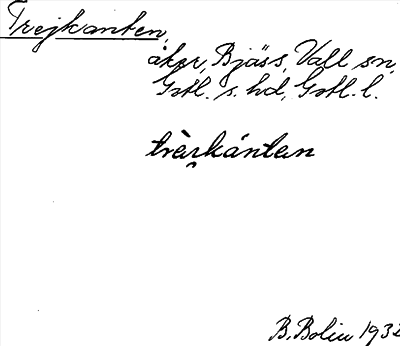 Trejkanten,
åker, Bjäss, Vall sn,
Gotl. s. hd, Gotl. l.
B. Bolin 1932